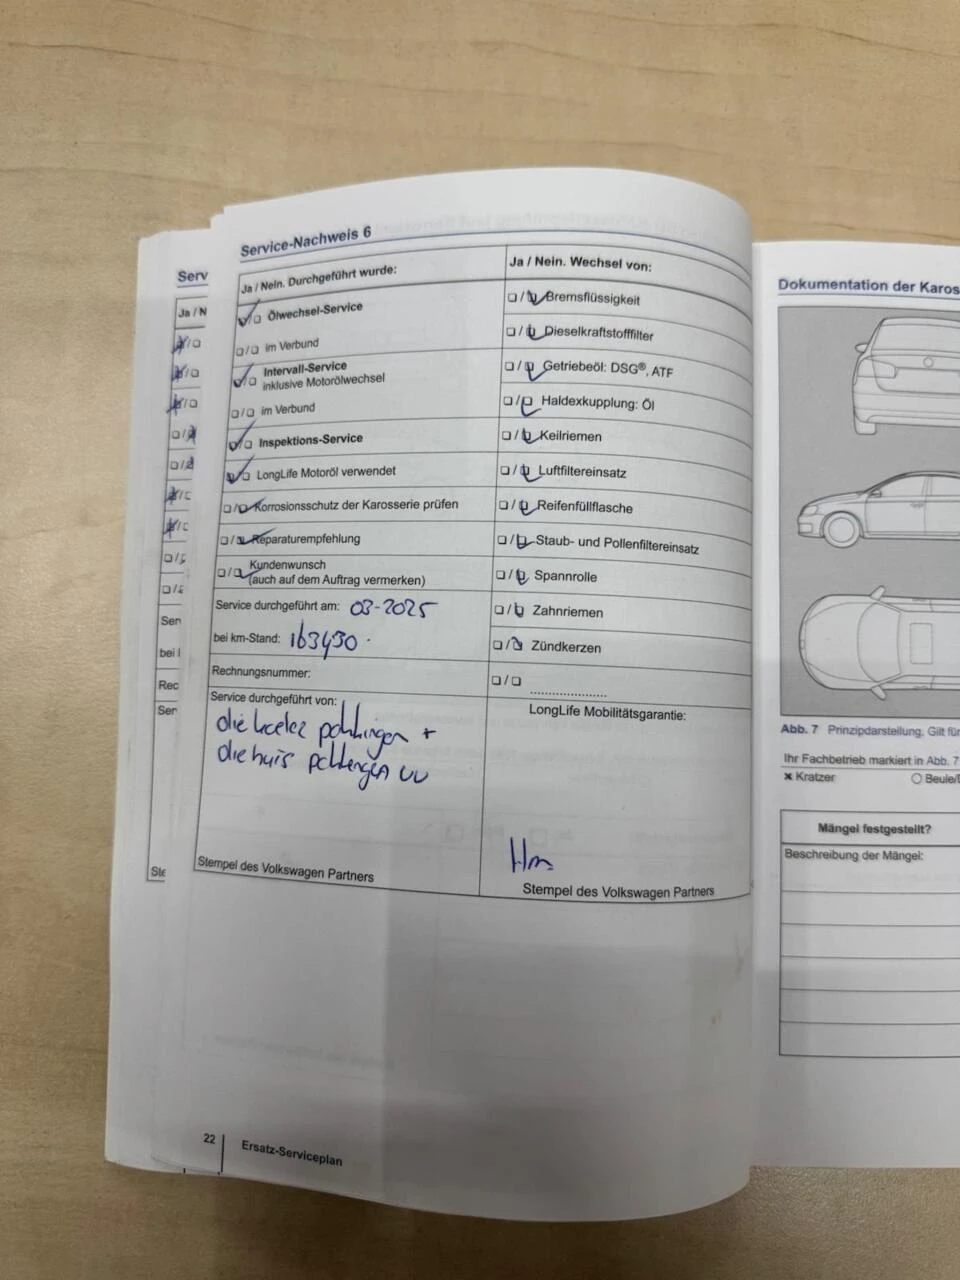 Service-Nachweis 6
Ja / Nein. Durchgeführt wurde:
Ölwechsel-Service
im Verbund
Intervall-Service
inklusive Motorölwechsel
im Verbund
Inspektions-Service
LongLife Motoröl verwendet
Korrosionsschutz der Karosserie prüfen
Reparaturempfehlung
Kundenwunsch
(auch auf dem Auftrag vermerken)
Service durchgeführt am: 03-2025
bei km-Stand: 163430
Rechnungsnummer:
Service durchgeführt von:
Stempel des Volkswagen Partners
Ja / Nein. Wechsel von:
Bremsflüssigkeit
Dieselkraftstofffilter
Getriebeöl: DSG®, ATF
Haldexkupplung: Öl
Keilriemen
Luftfiltereinsatz
Reifenfüllflasche
Staub- und Pollenfiltereinsatz
Spannrolle
Zahnriemen
Zündkerzen
LongLife Mobilitätsgarantie:
Stempel des Volkswagen Partners
22 Ersatz-Serviceplan
Serv
Ja / N
Ser
bei
Rec
Ser
Ste
Dokumentation der Karos
Abb. 7 Prinzipdarstellung. Gilt für
Ihr Fachbetrieb markiert in Abb. 7
Kratzer
Beule/
Mängel festgestellt?
Beschreibung der Mängel: